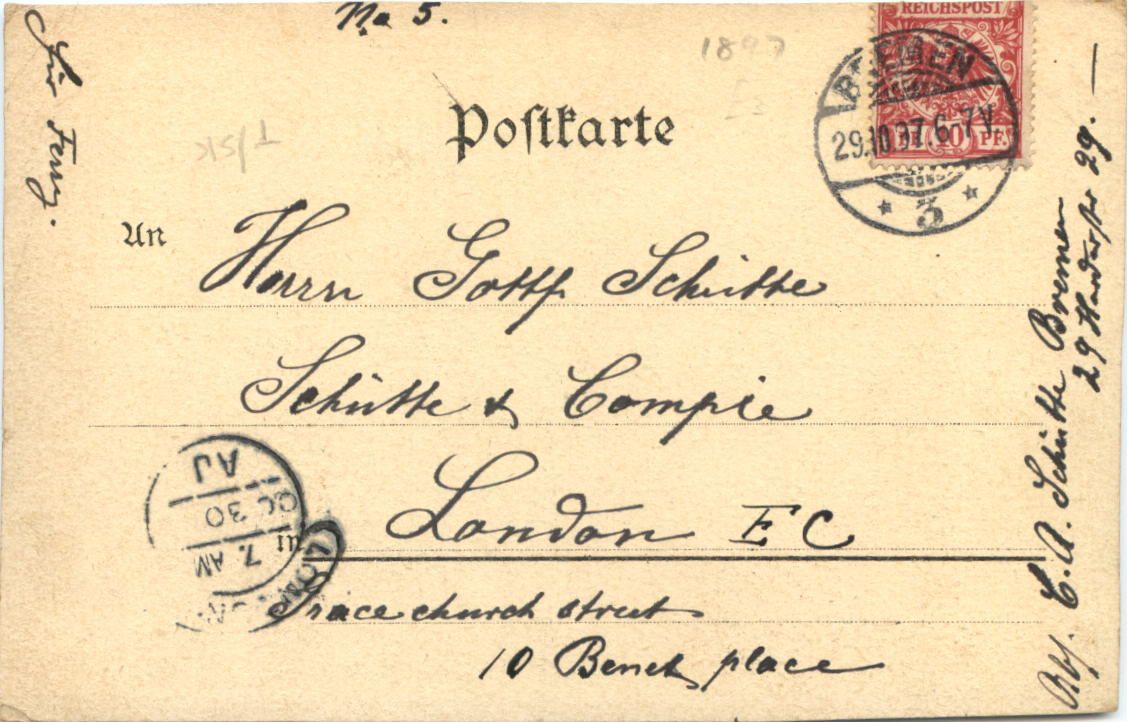 No 5.
1897
REICHSPOST
BREMEN
29.10.97. 6-7 V.
10 PF.
* 3 *
Postkarte
An
Herrn Gottf Schütte
Schütte & Compie
London E C
in
Gracechurch street
10 Benet place
AJ
OC 30
7. AM
LONDON
Für Ferry.
Abs. C. A. Schütte Bremen
29
29. —